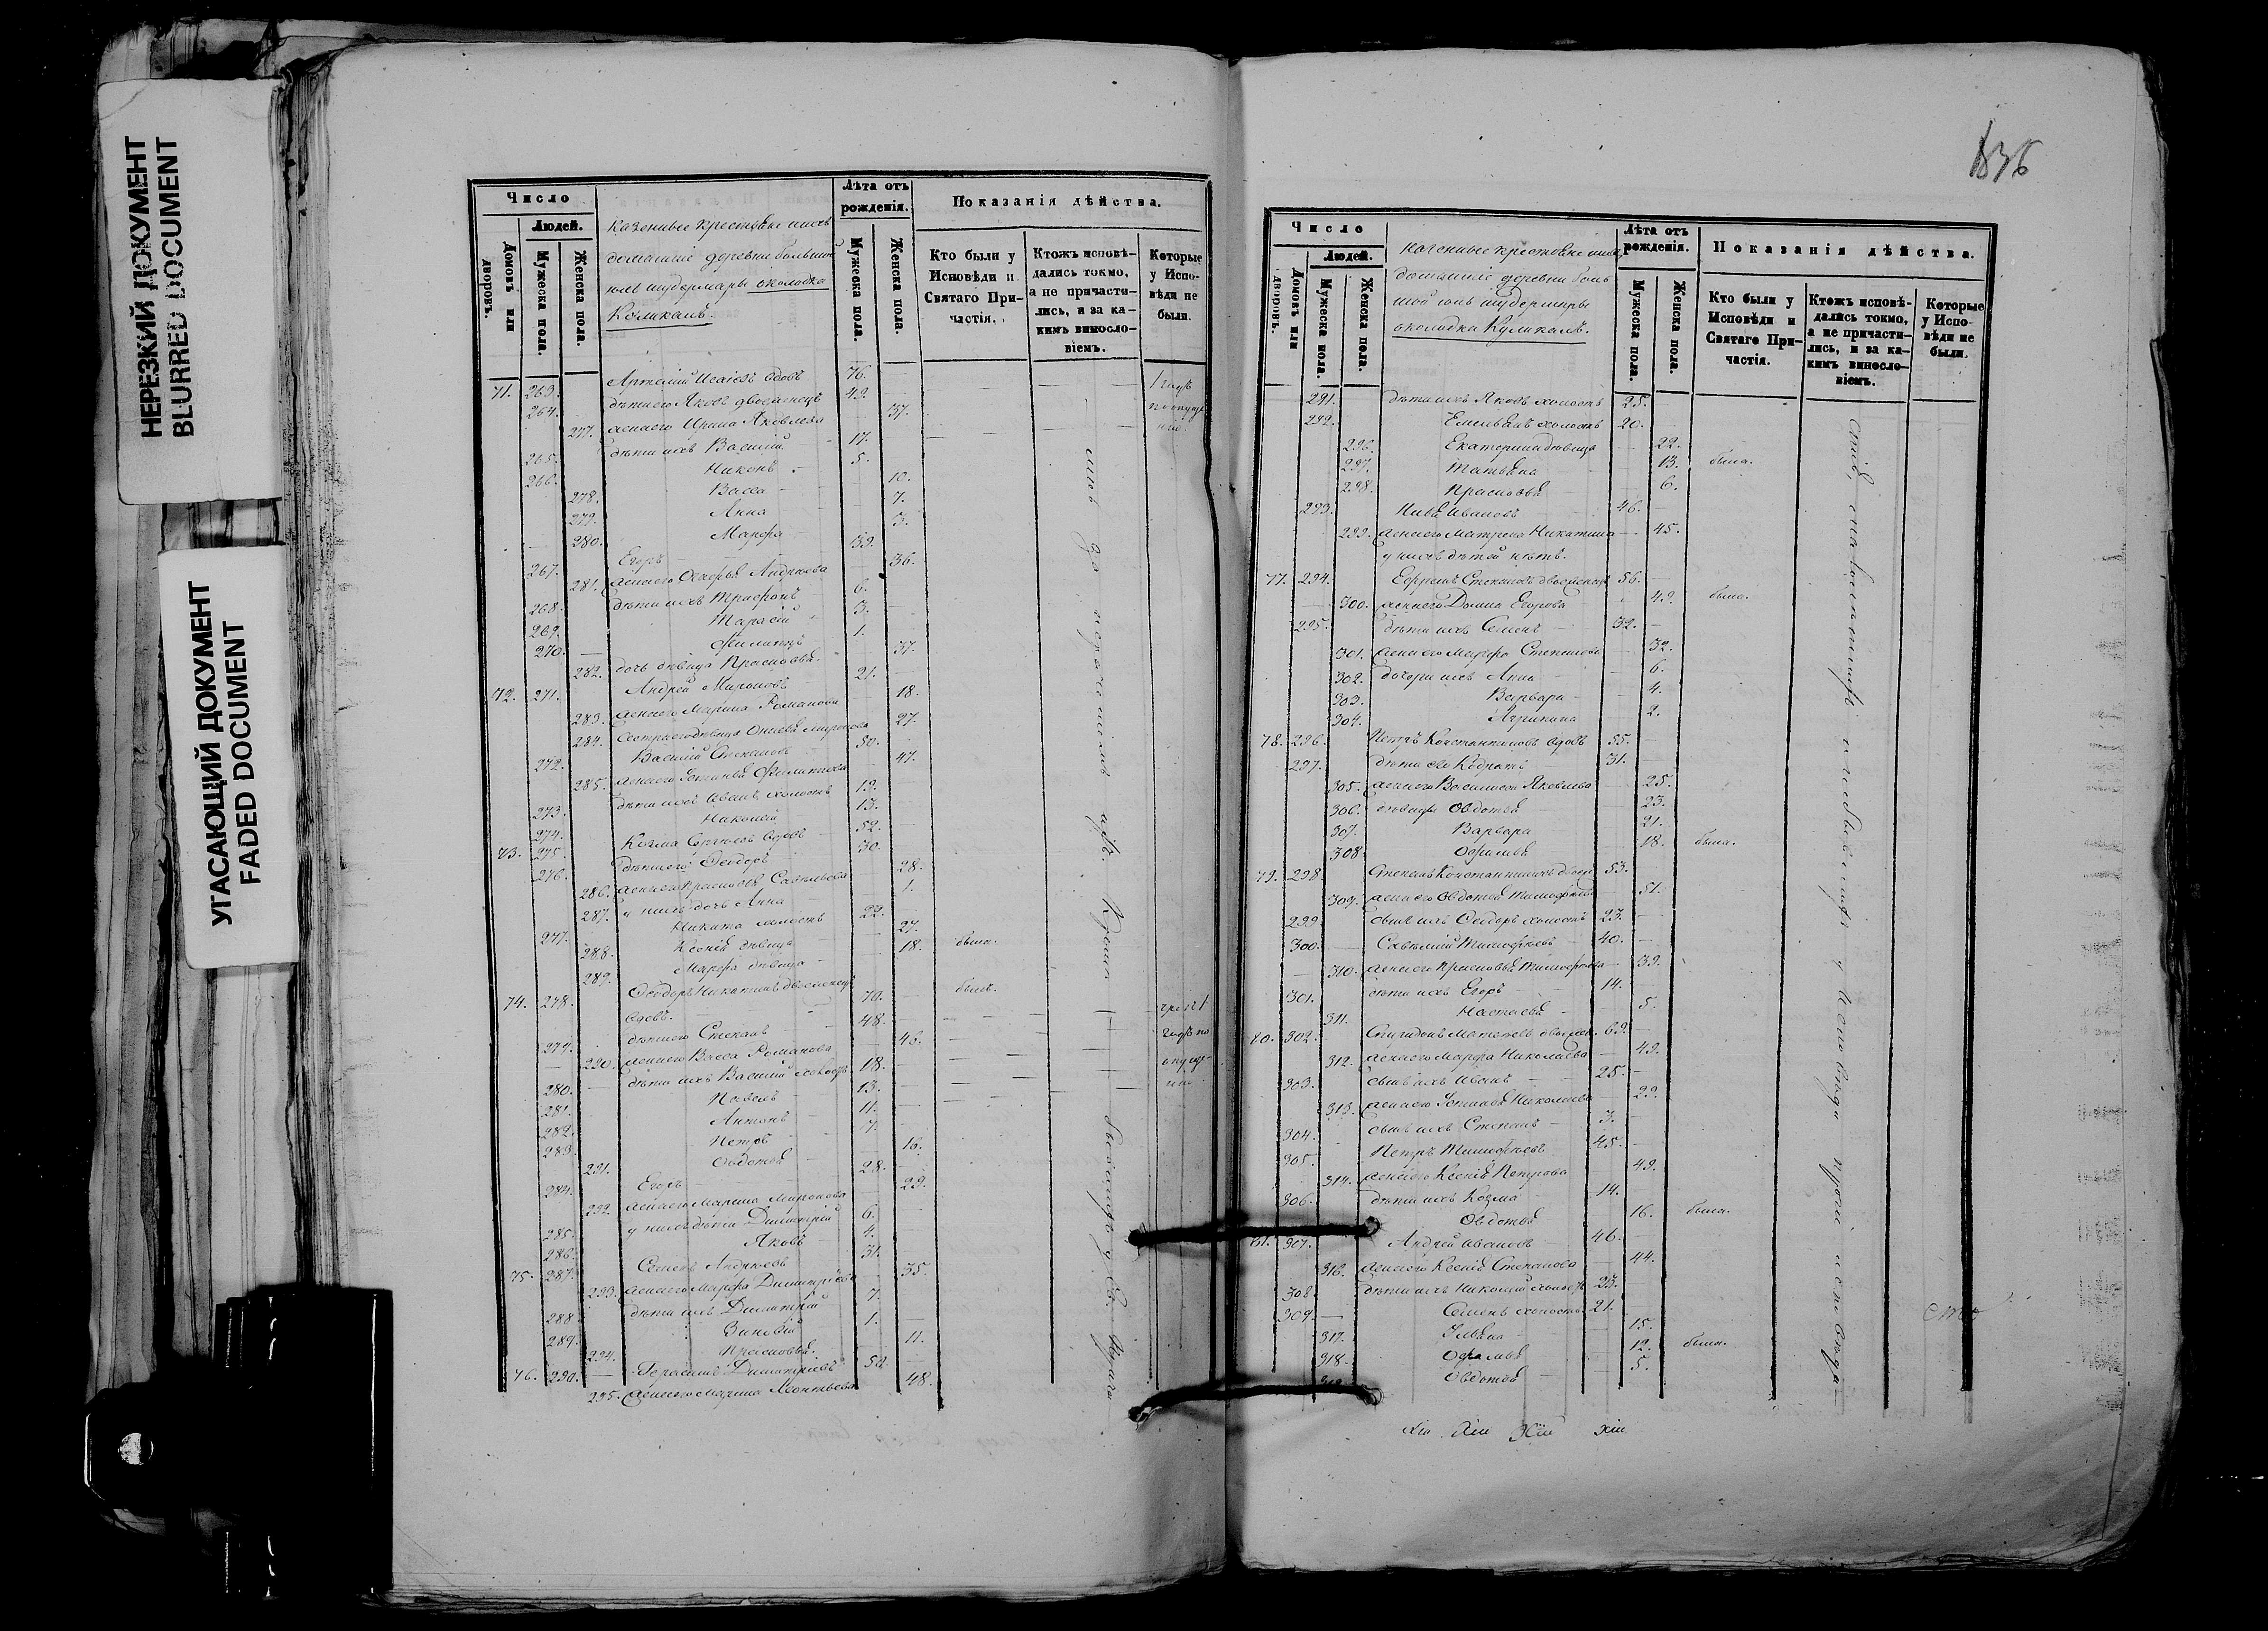 НЕРЕЗКИЙ ДОКУМЕНТ
BLURRED DOCUMENT
УГАСАЮЩИЙ ДОКУМЕНТ
FADED DOCUMENT
Число
Людей.
Домовъ или дворовъ.
Мужеска пола.
Женска пола.
Казенные крестьяне ихъ
домашніе деревни большой
околодка
Лѣта отъ рожденія.
Мужеска пола.
Женска пола.
Показанія дѣйства.
Кто были у Исповѣди и Святаго Причастія.
Ктожъ исповѣдались токмо, а не причастились, и за какимъ винословіемъ.
Которые у Исповѣди не были.
71. 263. Артемій Исаіевъ вдовъ 76. 1 годъ
264. дѣти его Яковъ двоеженецъ 49. по опуще
277. жена его Ирина Яковлева 37. нію.
265. дѣти ихъ Василій 17.
266. Никонъ 5.
278. Васса 10.
279. Анна 7.
280. Марфа 3.
267. Егоръ 39.
281. жена его Агафья Андреева 36.
268. дѣти ихъ Трифонъ 6.
269. Тарасій 3.
270. Филиппъ 1.
282. дочь дѣвица Прасковья 37.
72. 271. Андрей Мироновъ 21.
283. жена его Марина Романова 18.
284. Сестра его дѣвица Миронова 27.
272. Василій Степановъ 50.
285. жена его Филиппова 47.
273. дѣти ихъ Иванъ холостъ 19.
274. Николай 13.
73. 275. Козма Сергѣевъ вдовъ 52.
276. дѣти его Ѳеодоръ 30.
286. жена его Прасковья Савельева 28.
287. у нихъ дочь Анна 1.
277. Никита холостъ 22.
288. Ксенія дѣвица 27.
289. Марфа дѣвица 18. была.
74. 278. Ѳеодоръ Никитинъ двоеженецъ
вдовъ. 70. былъ.
279. дѣти его Степанъ 48.
290. жена его Васса Романова 46. годъ по
280. дѣти ихъ Василій холостъ 18. опуще-
281. Павелъ 13. нію.
282. Антонъ 11.
283. Петръ 7.
291. Овдотья 16.
284. Егоръ 28.
292. жена его Марина Миронова 29.
285. у нихъ дѣти Димитрій 6.
286. Яковъ 4.
75. 287. Семенъ Андреевъ 31.
293. жена его Марфа Димитріева 35.
288. дѣти ихъ Димитрій 7.
289. Зиновій 1.
294. Прасковья 11.
76. 290. Герасимъ Димитріевъ 50.
295. жена его Марина Леонтьева 48.
836
Число
Людей.
Домовъ или дворовъ.
Мужеска пола.
Женска пола.
Казенные крестьяне ихъ
домашніе деревни боль
шой
околодка Куликалъ.
Лѣта отъ рожденія.
Мужеска пола.
Женска пола.
Показанія дѣйства.
Кто были у Исповѣди и Святаго Причастія.
Ктожъ исповѣдались токмо, а не причастились, и за какимъ винословіемъ.
Которые у Исповѣди не были.
291. дѣти ихъ Яковъ холостъ 25.
292. Емельянъ холостъ 20.
296. Екатерина дѣвица 22.
297. Татьяна 13. была.
298. Прасковья 6.
293. Ивановъ 46.
299. жена его Матрена Никитина 45.
у нихъ дѣтей нѣтъ.
77. 294. Ефремъ Степановъ двоеженецъ 56.
300. жена его Домна Егорова 49. была.
295. дѣти ихъ Семенъ 32.
301. жена его Марфа Степанова 32.
302. дочери ихъ Анна 6.
303. Варвара 4.
304. Агрипина 2.
78. 296. Петръ Константиновъ вдовъ 55.
297. дѣти его Кодратъ 31.
305. жена его Василиса Яковлева 25.
306. дѣвицы Овдотья 23.
307. Варвара 21.
308. Офимья 18. была.
79. 298. Степанъ Константиновъ 53.
309. жена его Овдотья Тимофеева 51.
299. сынъ ихъ Ѳеодоръ холостъ 23.
300. Савелій Тимофеевъ 40.
310. жена его Прасковья Тимофеева 39.
301. дѣти ихъ Егоръ 14.
311. Настасья 5.
80. 302. Спиридонъ Матвеевъ двоежен. 69.
312. жена его Марфа Николаева 49.
303. сынъ ихъ Иванъ 25.
313. жена его Николаева 29.
304. сынъ ихъ Степанъ 3.
305. Петръ Тимофеевъ 45.
314. жена его Ксенія Петрова 49.
306. дѣти ихъ Козма 14.
Овдотья 16. была.
81. 307. Андрей Ивановъ 46.
316. жена его Ксенія Степанова 44.
308. дѣти ихъ Николай холостъ 23.
309. Семенъ холостъ 21.
317. Ульяна 15.
318. Офимья 12. была.
319. Овдотья 5.